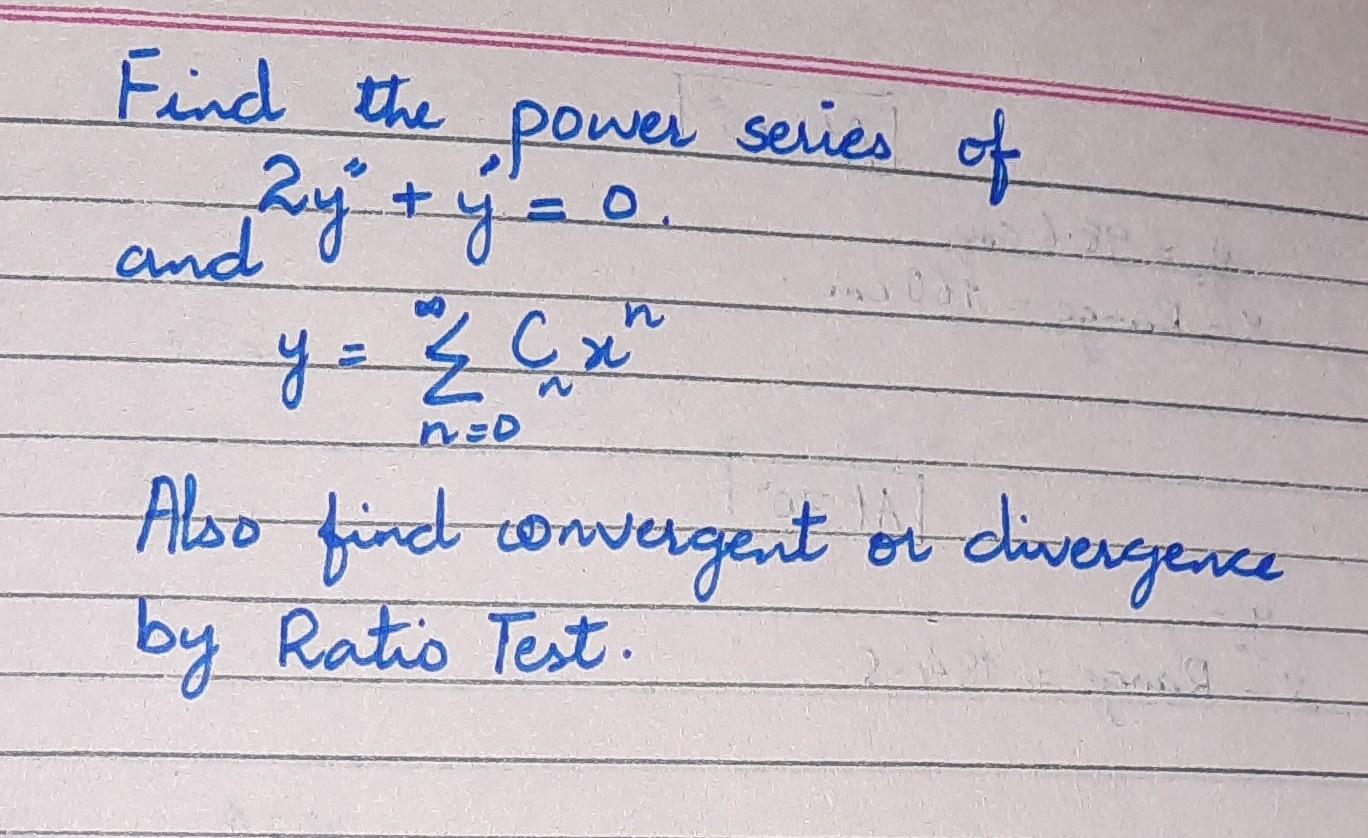 Find the power series of
2y'' + y' = 0.
and
y = ∞ Σ n=0 Cₙ xⁿ
Also find convergent or divergence
by Ratio Test.